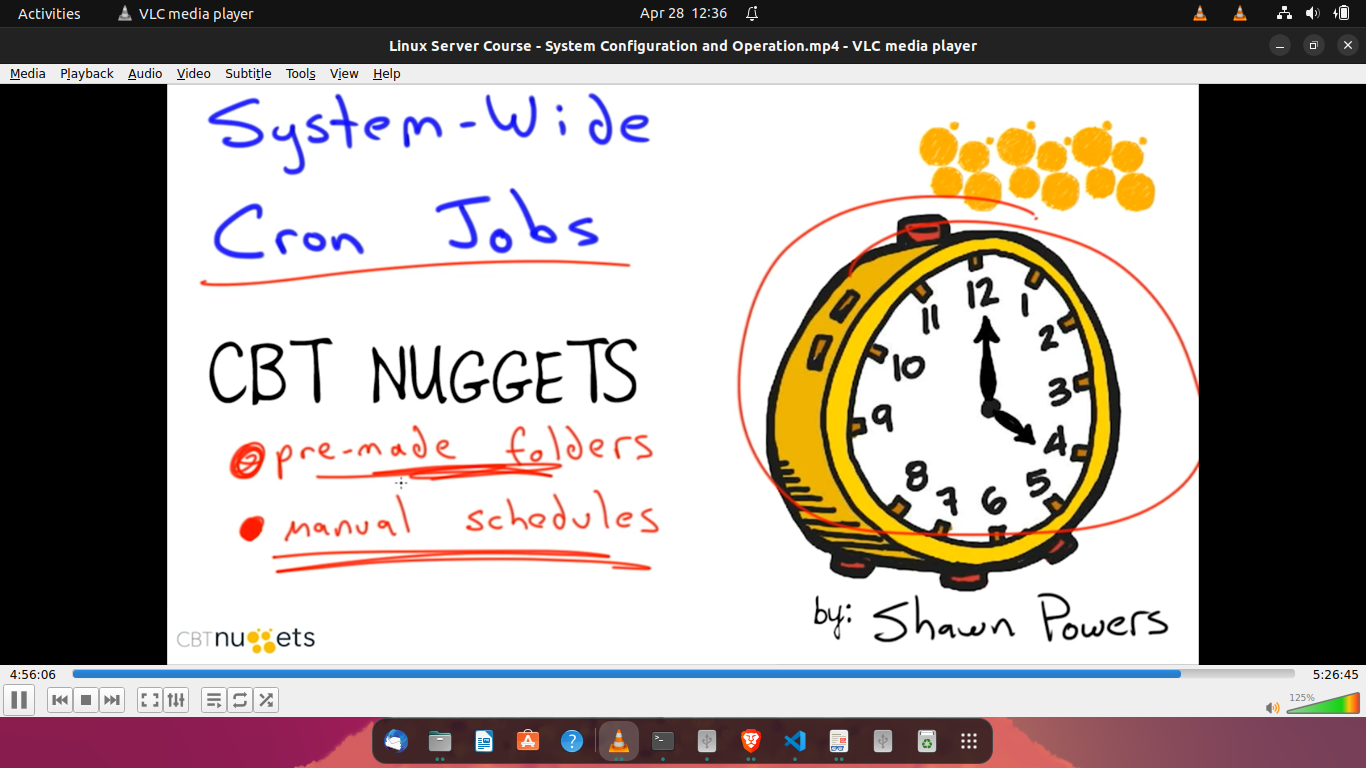 Activities
VLC media player
Apr 28 12:36
Linux Server Course - System Configuration and Operation.mp4 - VLC media player
Media Playback Audio Video Subtitle Tools View Help
System-Wide
Cron Jobs
CBT NUGGETS
pre-made folders
manual schedules
12
1
2
3
4
5
6
7
8
9
10
11
by: Shawn Powers
CBTnuggets
4:56:06
5:26:45
125%